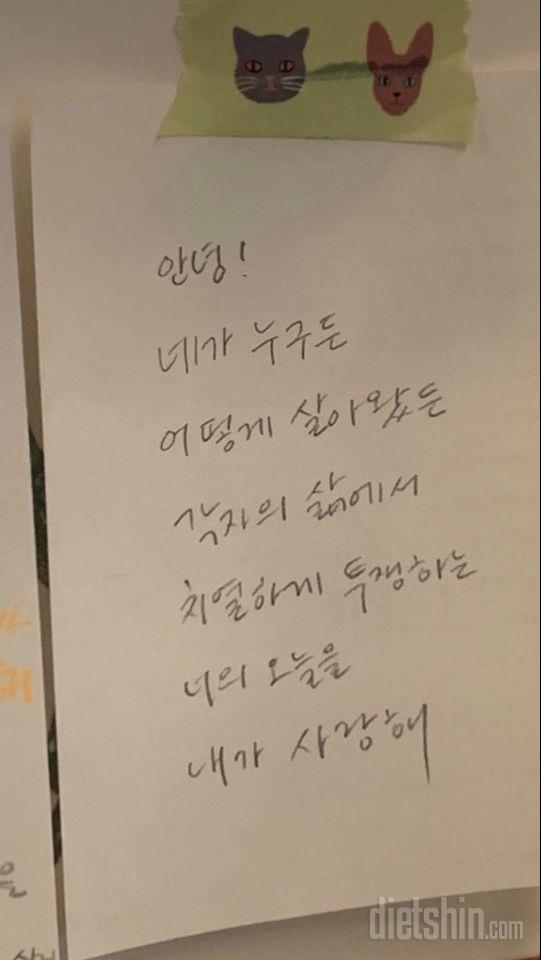 안녕!
네가 누구든
어떻게 살아왔든
각자의 삶에서
치열하게 투쟁하는
너의 오늘을
내가 사랑해
을
dietshin.com